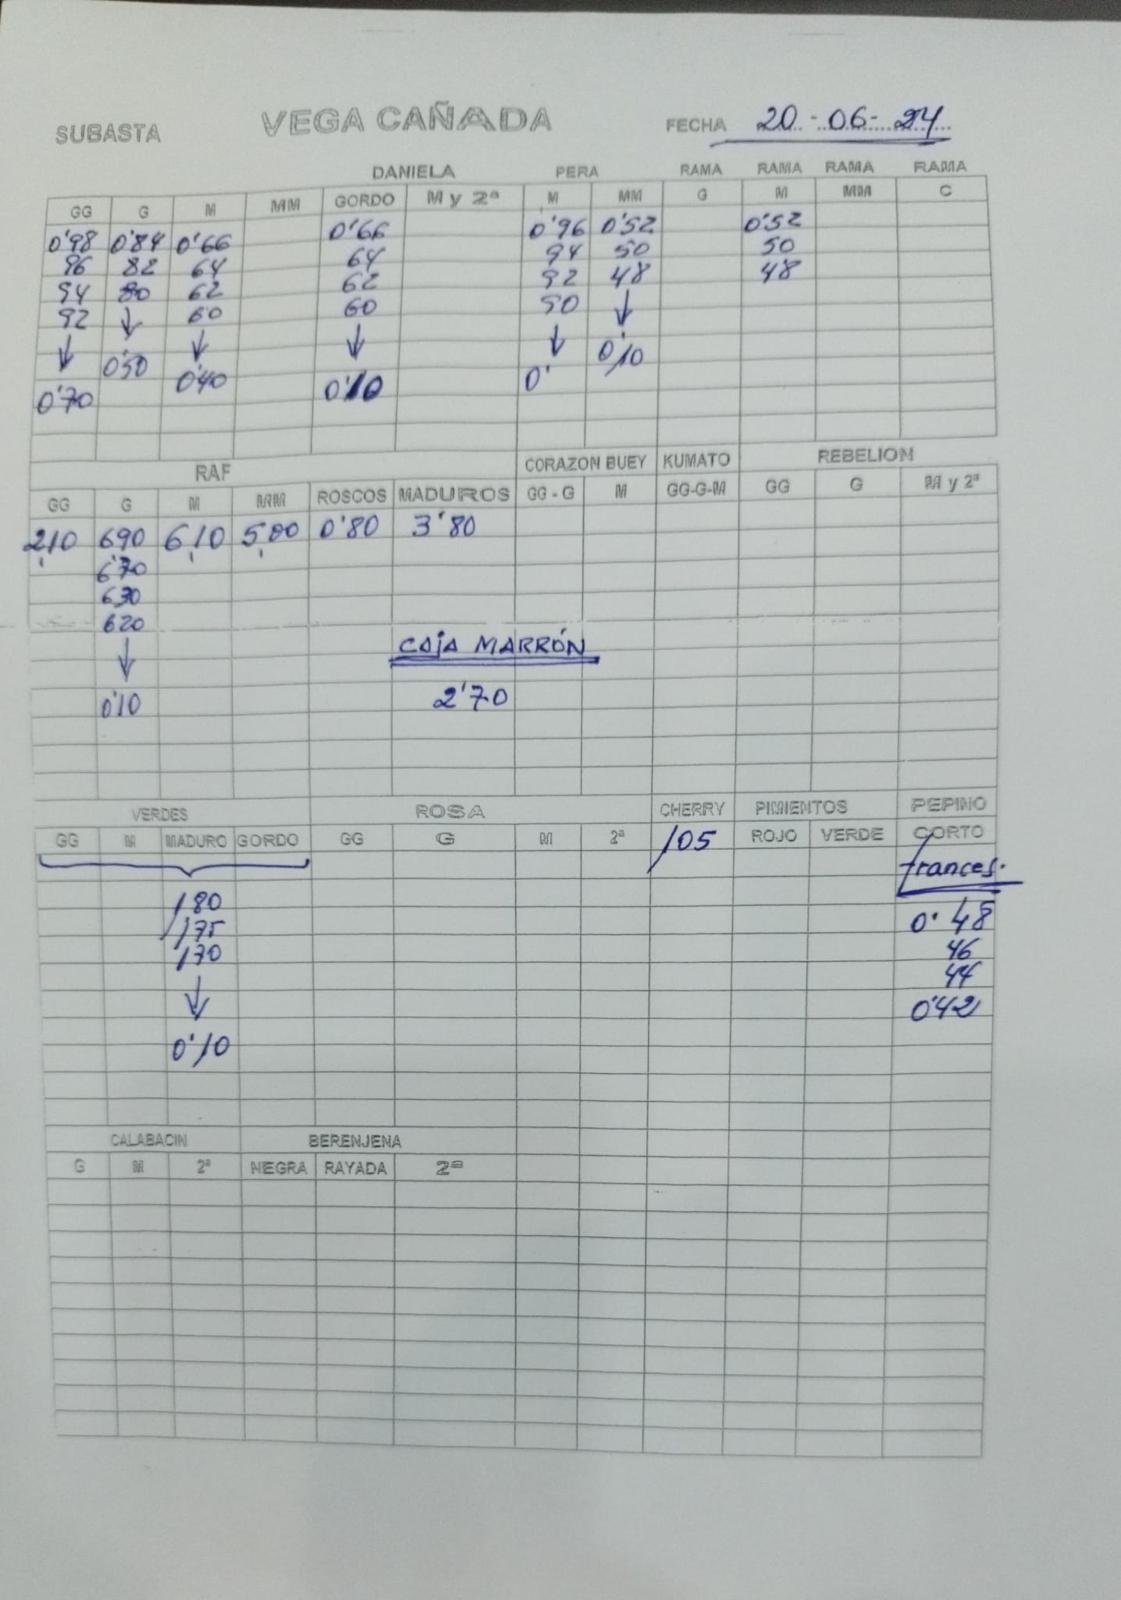 SUBASTA VEGA CAÑADA FECHA 20-06-24
DANIELA PERA RAMA RAMA RAMA RAMA
GG G M MM GORDO M y 2ª M MM G M MM C
0'98 0'84 0'66 0'66 0'96 0'52 0'52
96 82 64 64 94 50 50
94 80 62 62 92 48 48
92 ↓ 60 60 90 ↓
↓ 0'50 ↓ ↓ ↓ 0'10
0'70 0'40 0'10 0'
RAF CORAZON BUEY KUMATO REBELION
GG G M MM ROSCOS MADUROS GG - G M GG-G-M GG G M y 2ª
2,10 690 6,10 5,00 0'80 3'80
6'70
630
620
↓ CAJA MARRÓN
0'10 2'70
VERDES ROSA CHERRY PIMIENTOS PEPINO
GG M MADURO GORDO GG G M 2ª 105 ROJO VERDE CORTO
frances.
180 0'48
175 46
170 44
↓ 0'42
0'10
CALABACIN BERENJENA
G M 2ª NEGRA RAYADA 2ª